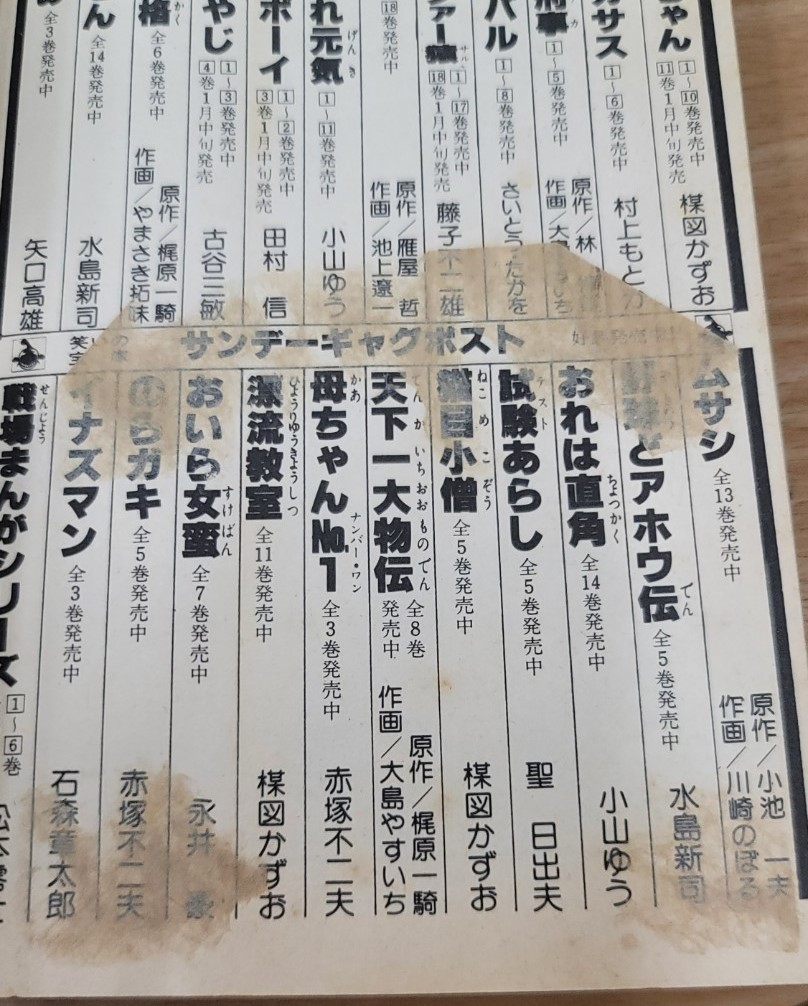 ゃん 1~10巻発売中
11巻1月中旬発売
楳図かずお
サス 1~6巻発売中 村上もとか
事 1~5巻発売中
原作/林
作画/大島
バル 1~8巻発売中 さいとう・たかを
ァー猿 1~17巻発売中
18巻1月中旬発売
藤子不二雄
18巻発売中
原作/雁屋 哲
作画/池上遼一
れ元気 1~11巻発売中 小山ゆう
ボーイ 1~2巻発売中
3巻1月中旬発売
田村 信
やじ 1~3巻発売中
4巻1月中旬発売
古谷三敏
格 全6巻発売中
原作/梶原一騎
作画/やまさき拓味
ん 全14巻発売中 水島新司
全3巻発売中 矢口高雄
サンデーギャグポスト
ムサシ 全13巻発売中
原作/小池 一夫
作画/川崎のぼる
どアホウ伝 全5巻発売中 水島新司
おれは直角 全14巻発売中 小山ゆう
試験あらし 全5巻発売中 聖 日出夫
猫目小僧 全5巻発売中 楳図かずお
天下一大物伝 全8巻発売中
原作/梶原一騎
作画/大島やすいち
母ちゃんNo.1 全3巻発売中 赤塚不二夫
漂流教室 全11巻発売中 楳図かずお
おいら女蛮 全7巻発売中 永井 豪
らガキ 全5巻発売中 赤塚不二夫
イナズマン 全3巻発売中 石森章太郎
戦場まんがシリーズ 1~6巻